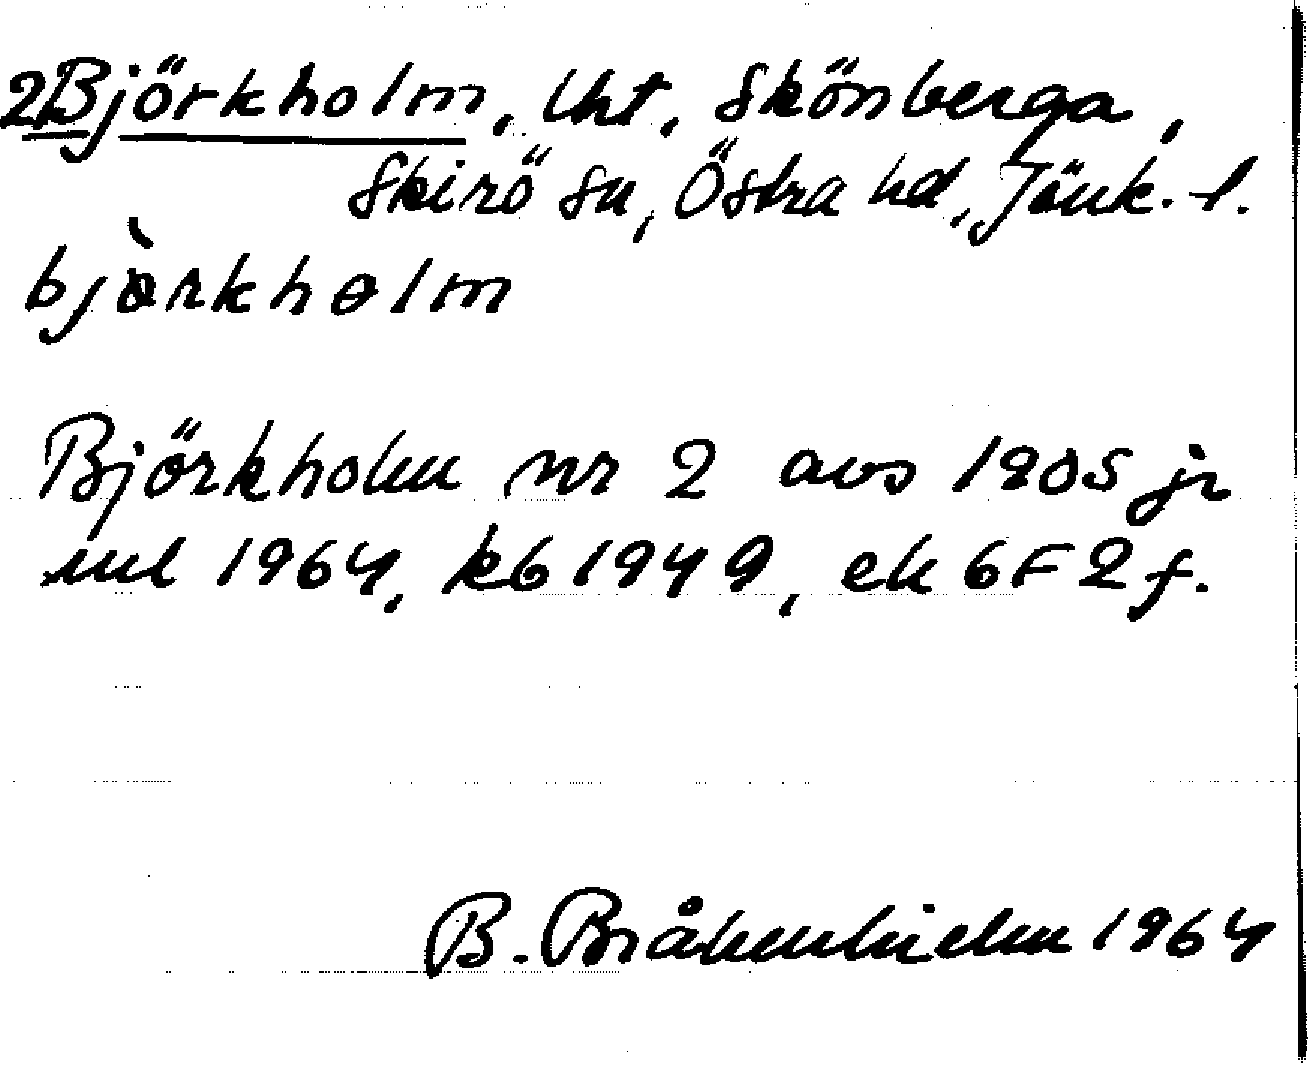 2Björkholm, lht, Skönberga,
Skirö sn, Östra hd, Jönk. l.
bjòrkhɵlm
Björkholm nr 2 avs 1905 jr
uul 1964, kb 1949, ek 6F2f.
B. Bråkenhielm 1964